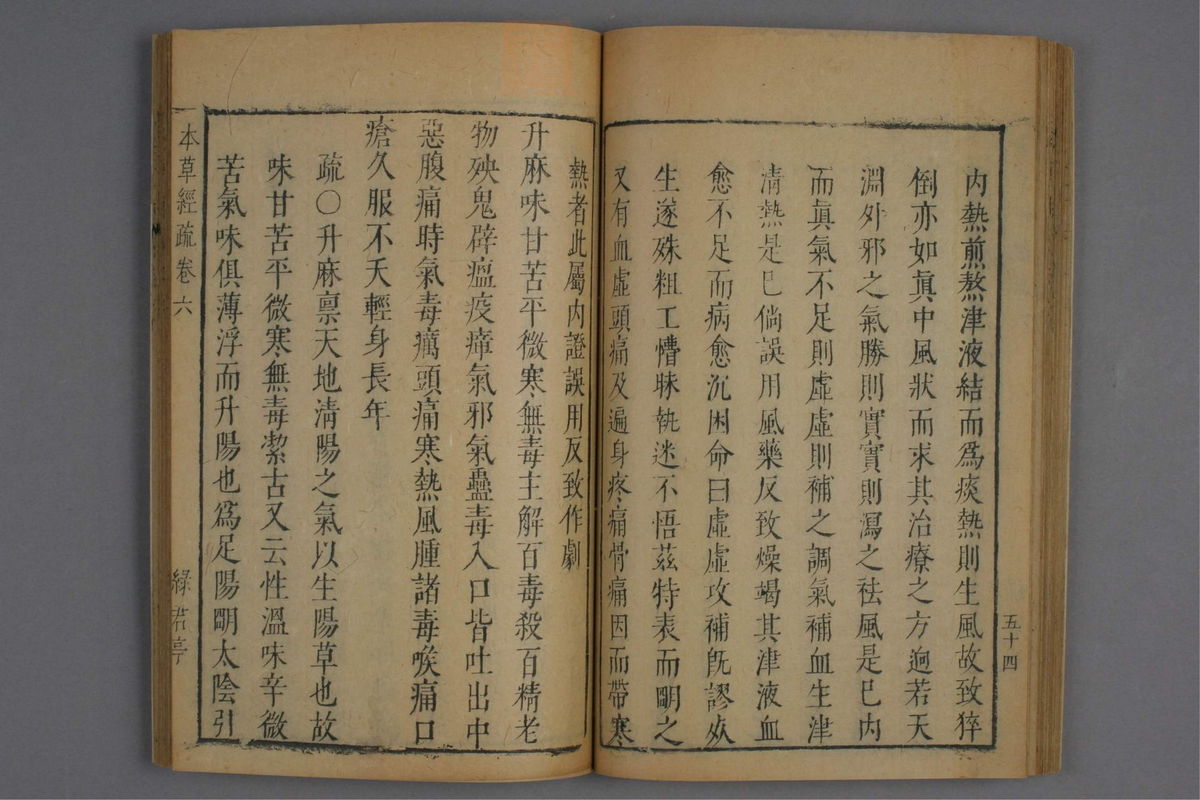 內熱煎熬津液結而爲痰熱則生風故致猝
倒亦如眞中風狀而求其治療之方逈若天
淵外邪之氣勝則實實則瀉之祛風是巳內
而眞氣不足則虛虛則補之調氣補血生津
清熱是巳倘誤用風藥反致燥竭其津液血
愈不足而病愈沉困命曰虛虛攻補旣謬殀
生遂殊粗工懵昧執迷不悟茲特表而朙之
又有血虛頭痛及遍身疼痛骨痛因而帶寒
五十四
熱者此屬內證誤用反致作劇
升麻味甘苦平微寒無毒主解百毒殺百精老
物殃鬼辟瘟疫瘴氣邪氣蠱毒入口皆吐出中
惡腹痛時氣毒癘頭痛寒熱風腫諸毒喉痛口
瘡久服不夭輕身長年
疏〇升麻禀天地清陽之氣以生陽草也故
味甘苦平微寒無毒潔古又云性溫味辛微
苦氣味俱薄浮而升陽也爲足陽朙太陰引
本草經疏 卷六 綠君亭